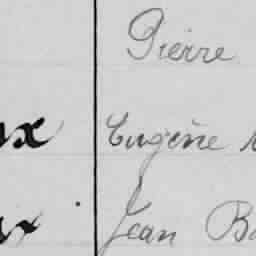 Pierre
ux Eugène
ux Jean